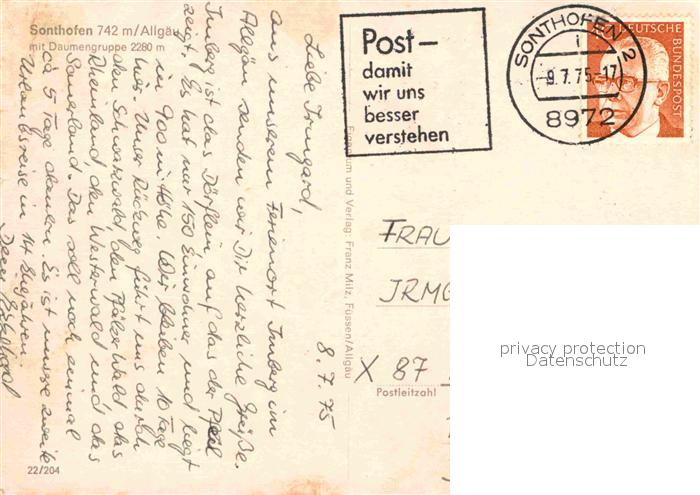 Sonthofen 742 m/Allgäu
mit Daumengruppe 2280 m
8.7.75
Liebe Irmgard,
aus unserem Ferienort Imberg im
Allgäu senden wir Dir herzliche Grüße.
Imberg ist das Dörflein, auf das der Pfeil
zeigt. Es hat nur 150 Einwohner und liegt
in 900 m Höhe. Wir bleiben 10 Tage
hier. Unser Rückweg führt uns durch
den Schwarzwald, den Pfälzer Wald, das
Rheinland, den Westerwald und das
Sauerland. Das soll noch einmal
ca 5 Tage dauern. Es ist unsere zweite
Urlaubsreise in 14 Ehejahren.
22/204
Eigentum und Verlag: Franz Milz, Füssen/Allgäu
Post –
damit
wir uns
besser
verstehen
SONTHOFEN 2
i
9.7.75-17
8972
DEUTSCHE
BUNDESPOST
FRAU
IRMG
X 87
Postleitzahl
privacy protection
Datenschutz